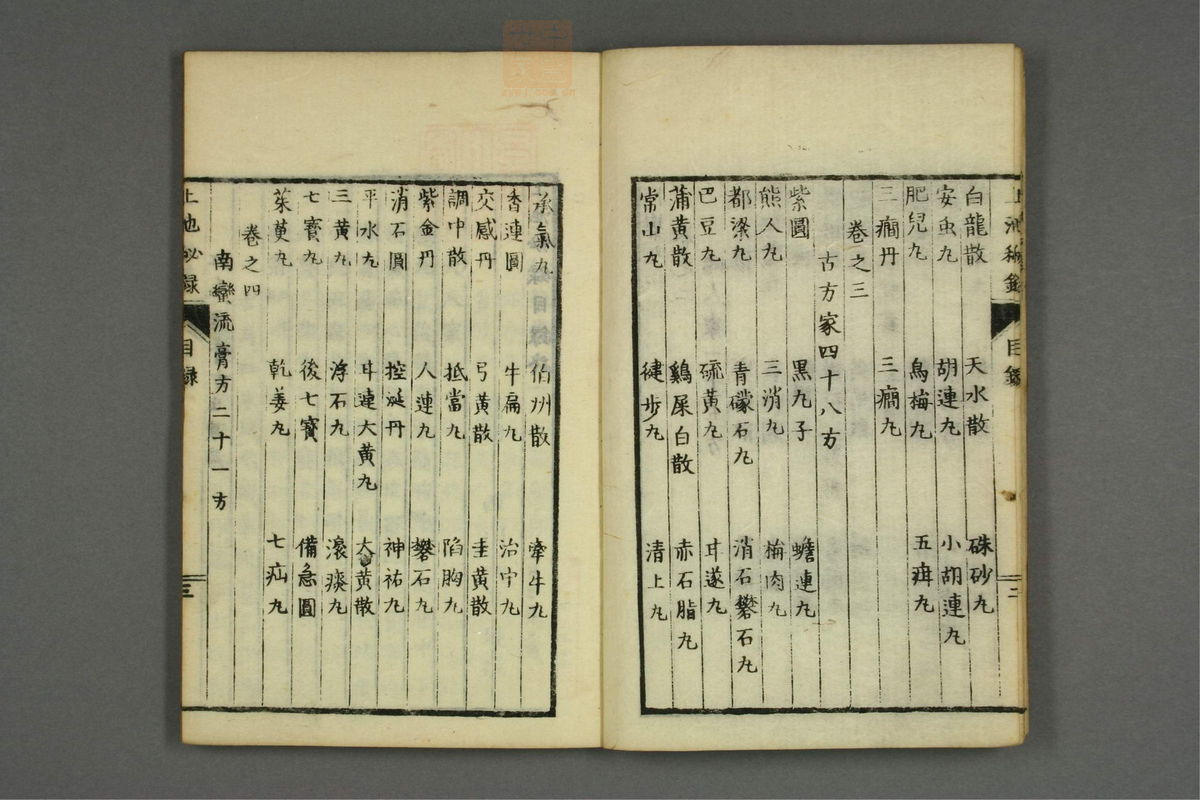 上池秘録
目録
二
白龍散 天水散 硃砂丸
安虫丸 胡連丸 小胡連丸
肥兒丸 烏梅丸 五疳丸
三癎丹 三癇丸
卷之三
古方家四十八方
紫圓 黒丸子 蟾連丸
熊人丸 三消丸 梅肉丸
都梁丸 青礞石丸 消石礬石丸
巴豆丸 硫黄丸 甘遂丸
蒲黄散 鷄屎白散 赤石脂丸
常山丸 健步丸 清上丸
承氣丸 伯州散 牽牛丸
香連圓 牛扁丸 治中丸
交感丹 弓黄散 圭黄散
調中散 抵當丸 陷胸丸
紫金丹 人連丸 礬石丸
消石圓 控涎丹 神祐丸
平水丸 甘連大黄丸 大黄散
三黄丸 浮石丸 滾痰丸
七寳丸 後七寳 備急圓
茱萸丸 乾姜丸 七疝丸
卷之四
南蠻流膏方二十一方
上池秘録
目録
三